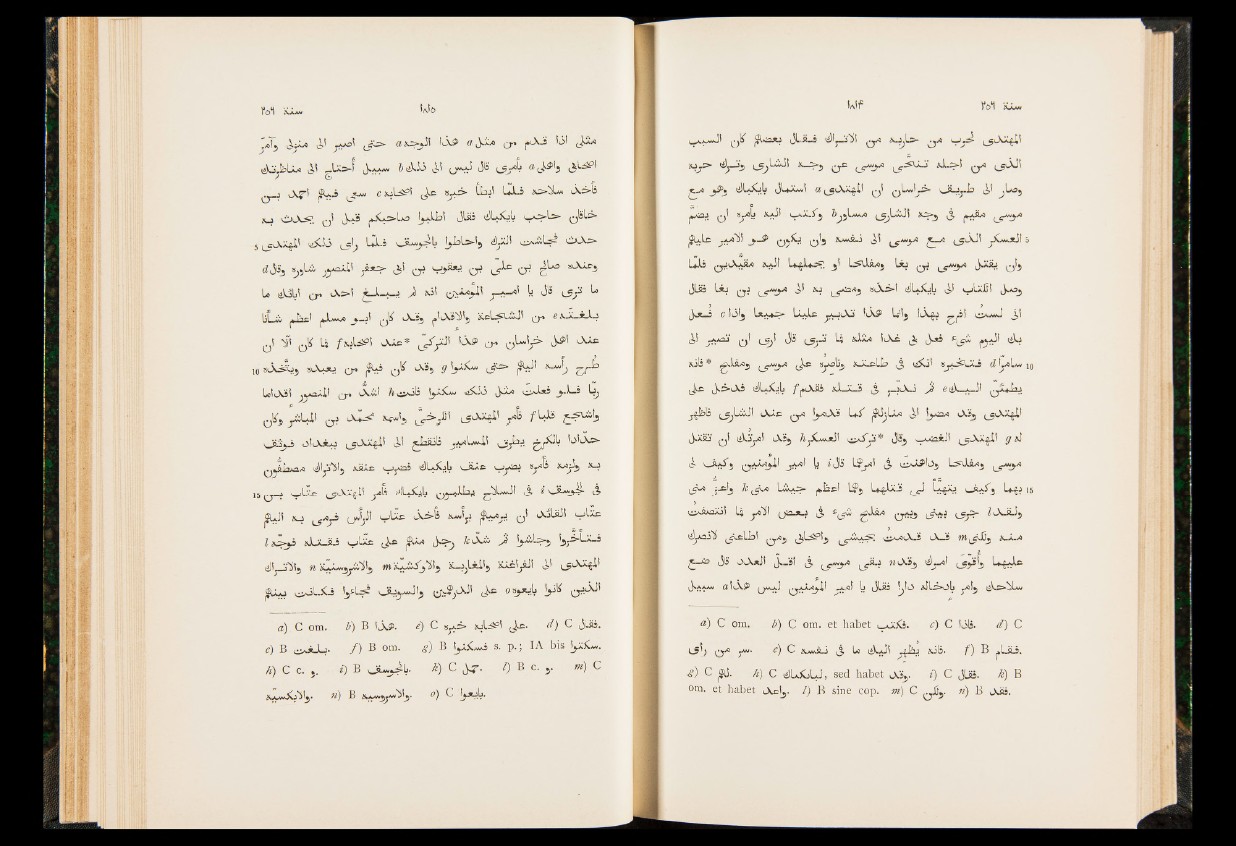 سنة ٢٥٦ ١٨١٤
المهتدى لحرب من حاربه من الاتراك فقال بعضهم كان السبب
الذى من اجله تنحّى موسى عن وجه الشارى وترك حربه
وصار الى طريق خراسان ان المهتدى a استمال بايكباك وهو مع
موسى مقيم فى وجه الشارى مساور b وكتب اليه يأمره ان يضمّ
5 العسكر الذى مع موسى الى نفسه وان يكون هو الامير عليهم
وان يقتل موسى بن بغا ومفلحا او يحملهما اليه مقيّدين فلمّا
وصل الكتاب الى بايكباك اخذه ومضى به الى موسى بن بغا فقال
انى لست افرح بهذا وانما هذا تدبير علينا جميعا واذا c فُعل
بك اليوم شىء فعل بى غدا مثله فما ترى قال ارى ان تصير الى
10 سامرّا d فتخبره انك فى طاعته وناصره على موسى ومفلح *فانه
يطمئنّ اليك e ثم ندبّر فى قتله فقدم f بايكباك فدخل على
المهتدى وقد مضوا الى منازلهم كما قدموا من عند الشارى فاظهر
له g المهتدى الغضب وقال *تركت العسكر h وقد امرتك ان تقتل
موسى ومفلحا وداهنت فى امرهما قال i يا امير المؤمنين وكيف لى
15 بهما وكيف يتهيّأ لى قتلهما وهما اعظم جيشا منى k واعزّ منى
ولقد l جرى بينى وبين مفلح شىء فى بعض الامر فما انتصفت
منه ولكنى m قد قدمت بجيشى واصحابى ومن اطاعنى لانصرك
عليهما واقوّى امرك وقد n بقى موسى فى اقلّ العدد قال ضع
سلاحك وامر بادخاله دارا فقال يا امير المؤمنين ليس هذا a سبيل
a) C om. b) C om. et habet فكتب. c) C فاذا. d) C
سر من رأى. e) C فانه يظهر اليك ما فى نفسه. f) B فقام.
g) C لهم. h) C لبايكباك, sed habet وقد. i) C فقال. k) B
om. et habet واعد. l) B sine cop. m) C ولكن. n) B فقد.
سنة ٢٥٦ ١٨١٥
مثلى اذا قدم من مثل a هذا الوجه a حتى اصير الى منزلى وآمر
اصحابى واهلى a بأمرى قال ليس الى ذلك b سبيل أحتاج الى مناظرتك
فأخذ سلاحه فلمّا ابطأ خبره على اصحابه c سعى فيهم احمد بن
خاقان حاجب بايكباك فقال اطلبوا صاحبكم قبل ان يحدث به
5 حدث فجاشت الترك واحاطوا بالجوسق فلمّا رأى ذلك المهتدى
وعنده صالح بن علىّ بن يعقوب بن ابى جعفر المنصور شاوره وقال d
ما ترى قال يا امير المؤمنين انه لم يبلغ احد من آبائك ما
بلغتَه e من الشجاعة والاقدام وقد كان ابو مسلم اعظم شأنا
عند اهل خراسان من هذا التركىّ *عند اصحابه f فما كان الّا ان
10 طرح رأسه اليهم حتى سكنوا g وقد كان فيهم من يعبده ويتّخذه
ربّا فلو فعلت مثل ذلك سكنوا فانت h اشدّ من المنصور اقداما
واشجع قلبا f فأمر المهتدى الكرخىّ واسمه محمّد بن المباشر وكان
حدّادا بالكرخ يطرق المسامير فانقطع الى المهتدى ببغداد فوثق
به ولزمه فأمره بضرب عنقه بايكباك فضرب عنقه والاتراك مصطفّون
15 فى الجوسق i فى السلاح يطلبون بايكباك فأمر المهتدى عتّاب بن
عتّاب القائد ان يرميهم برأسه فأخذ عتّاب الرأس فرمى به اليهم
فتأخّروا وجاشوا ثم شدّ k رجل منهم على عتّاب فقتله فوجّه l
المهتدى الى الفراغنة والمغاربة والاوكشيّة m والاشروسنيّة n والاتراك
الذين كانوا بايعوه o على الدرهمين والسويق فجاءوا فكانت بينهم
a) C om. b) B هذا. c) C على اصحابه خبره. d) C فقال.
e) B بلغت. f) B om. g) B فسكنوا s. p.; IA bis سكنوا.
h) C c. و. i) B بالجوسق. k) C حمل. l) B c. و. m) C
والابكسيّة. n) B والاسروسنية. o) C بايعوا.